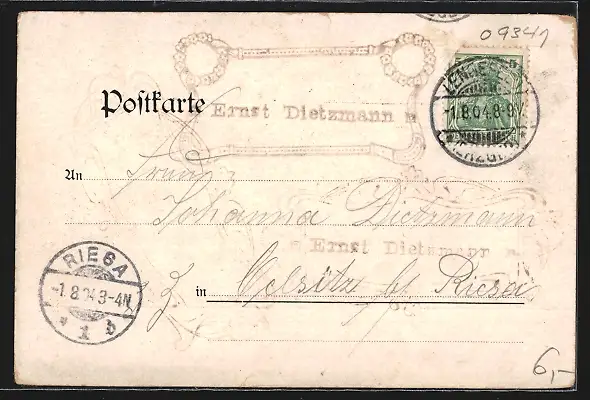 09341
5
-1.8.04.8-9V.
Postkarte
Ernst Dietzmann
An Frau
Johanna Dietzmann
Ernst Dietzmann
in Oelsitz b/ Riesa
RIESA
-1.8.04 3-4N
* 1 b
6,-